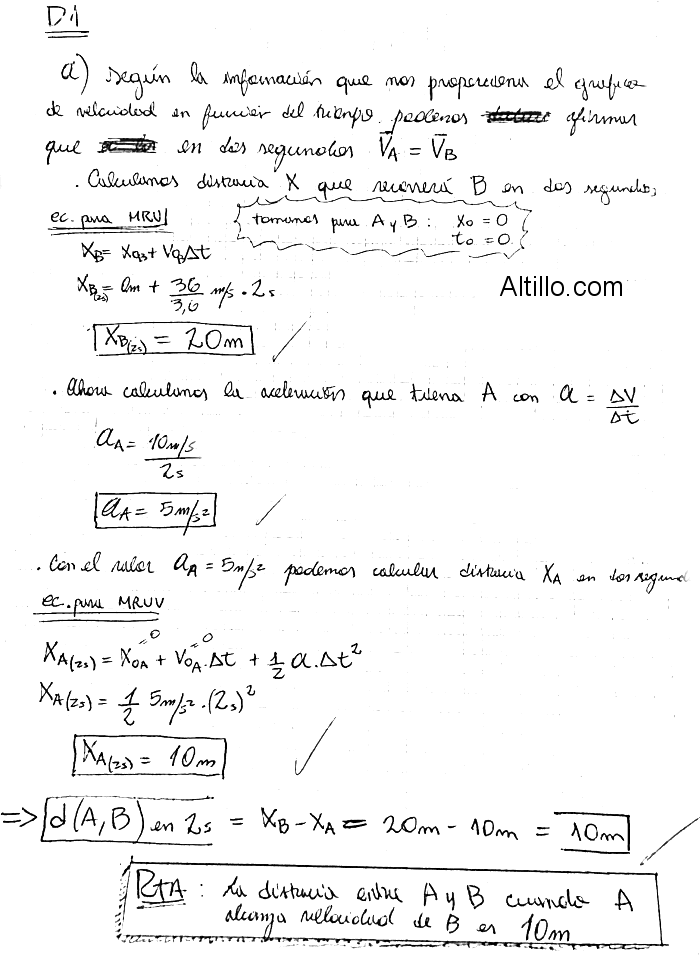 D1
a) Según la información que nos proporciona el grafico
de velocidad en funcion del tiempo. podemos afirmar
que en dos segundos V̄A = V̄B
. Calculamos distancia X que recorrerá B en dos segundos;
ec. para MRU
tomamos para A y B : x0 = 0
t0 = 0
XB = X0B + VB Δt
XB(2s) = 0m + 36/3,6 m/s . 2s
Altillo.com
XB(2s) = 20m
. Ahora calculamos la aceleración que tiene A con a = ΔV/Δt
aA = 10m/s / 2s
aA = 5m/s²
. Con el valor aA = 5m/s² podemos calcular distancia XA en dos segund
ec. para MRUV
=0 =0
XA(2s) = X0A + V0A.Δt + 1/2 a.Δt²
XA(2s) = 1/2 5m/s² . (2s)²
XA(2s) = 10m
=> d(A,B) en 2s = XB - XA = 20m - 10m = 10m
RtA : La distancia entre A y B cuando A
alcanza velocidad de B es 10m